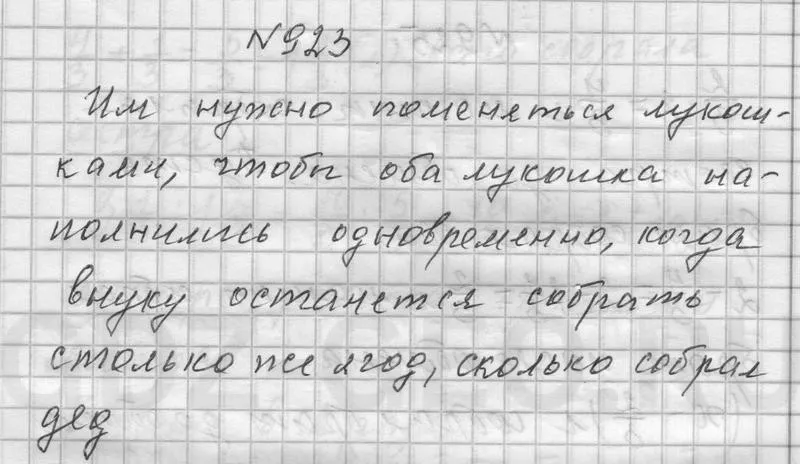 №923
Им нужно поменяться лукош-
ками, чтобы оба лукошка на-
полнились одновременно, когда
внуку останется собрать
столько же ягод, сколько собрал
дед